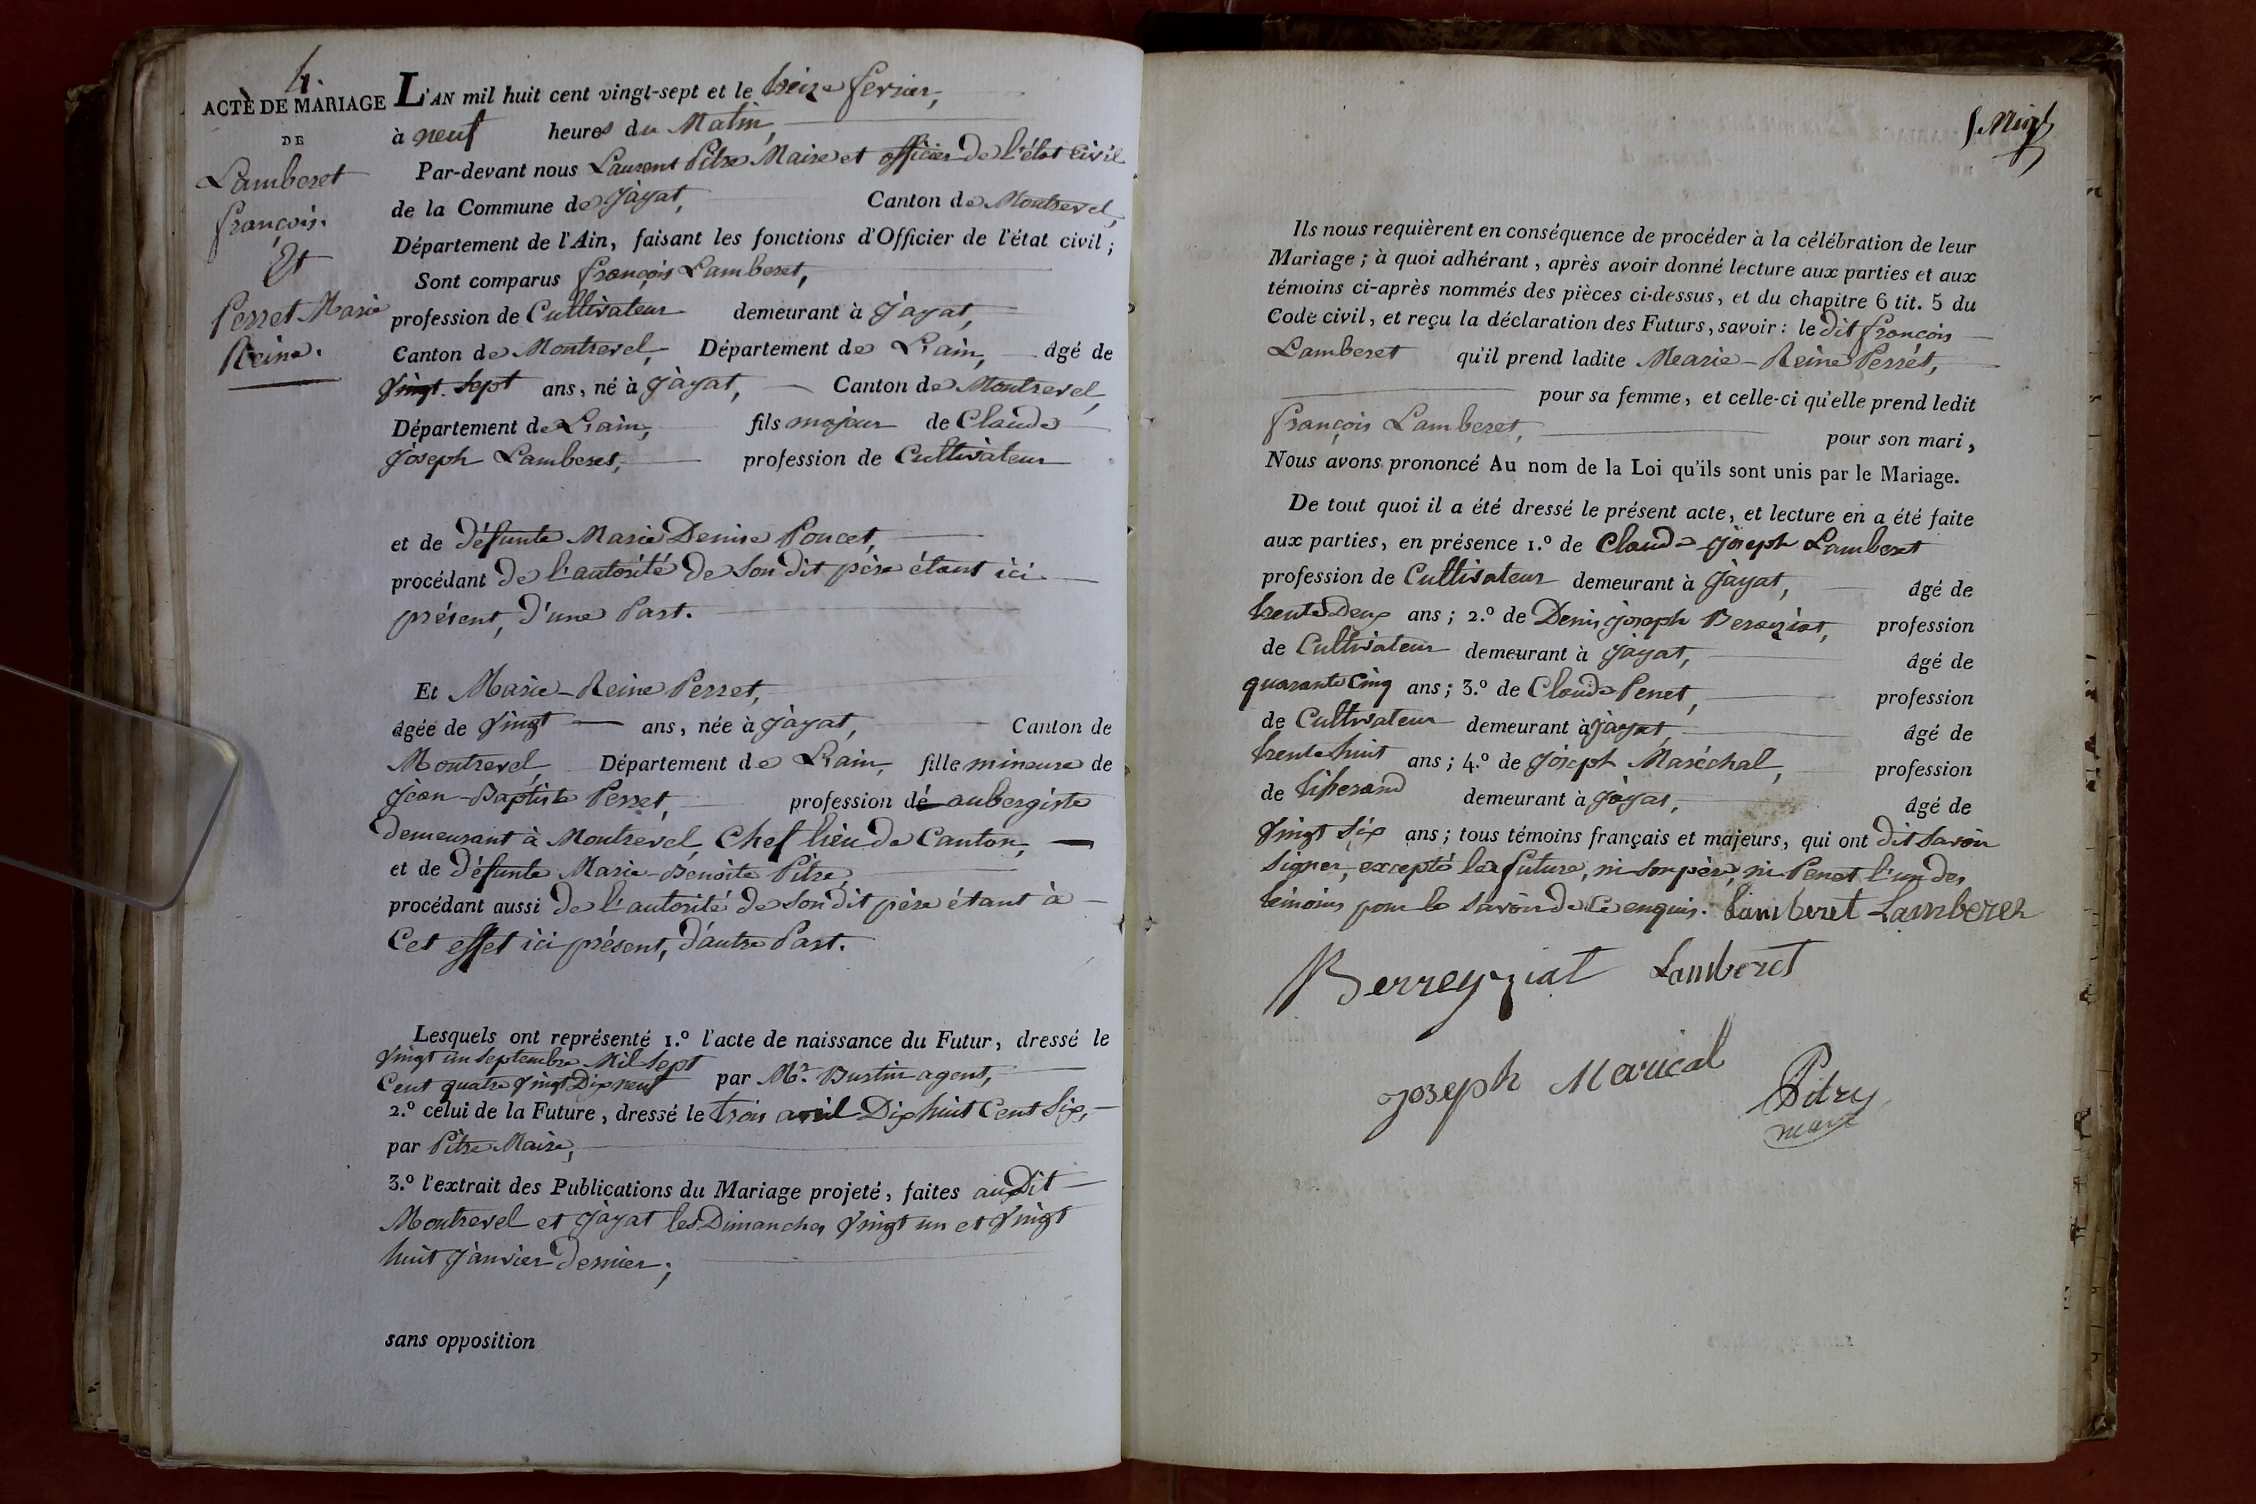 4.
ACTE DE MARIAGE
DE
Lamberet
françois.
Et
Perret Marie
Reine.
L'AN mil huit cent vingt-sept et le treize fevrier,
à neuf heures du Matin,
Par-devant nous Laurent Pitre Maire et officier de l'état Civil
de la Commune de Jayat, Canton de Montrevel,
Département de l'Ain, faisant les fonctions d'Officier de l'état civil ;
Sont comparus françois Lamberet,
profession de Cultivateur demeurant à Jayat,
Canton de Montrevel, Département de L'ain, âgé de
vingt-sept ans, né à Jayat, Canton de Montrevel,
Département de L'ain, fils majeur de Claude
Joseph Lamberet, profession de Cultivateur
et de défunte Marie Denise Poncet,
procédant de l'autorité de son dit père étant ici
présent, d'une Part.
Et Marie-Reine Perret,
âgée de vingt ans, née à Jayat, Canton de
Montrevel, Département de L'ain, fille mineure de
Jean-Baptiste Perret, profession de aubergiste
demeurant à Montrevel, Chef lieu de Canton,
et de défunte Marie-Benoite Pitre,
procédant aussi de l'autorité de son dit père étant à
Cet effet ici présent, d'autre Part.
Lesquels ont représenté 1.° l'acte de naissance du Futur, dressé le
vingt un septembre Mil sept
Cent quatre vingt Dix neuf par Mr. Bustin agent,
2.° celui de la Future, dressé le trois avril Dix huit Cent Six,
par Pitre Maire,
3.° l'extrait des Publications du Mariage projeté, faites au Dit
Montrevel et Jayat les Dimanches vingt un et vingt
huit Janvier dernier;
sans opposition
Ils nous requièrent en conséquence de procéder à la célébration de leur
Mariage ; à quoi adhérant, après avoir donné lecture aux parties et aux
témoins ci-après nommés des pièces ci-dessus, et du chapitre 6 tit. 5 du
Code civil, et reçu la déclaration des Futurs, savoir : le dit françois
Lamberet qu'il prend ladite Mearie-Reine Perrét,
pour sa femme, et celle-ci qu'elle prend ledit
françois Lamberet, pour son mari,
Nous avons prononcé Au nom de la Loi qu'ils sont unis par le Mariage.
De tout quoi il a été dressé le présent acte, et lecture en a été faite
aux parties, en présence 1.° de Claude Joseph Lamberet
profession de Cultivateur demeurant à Jayat, âgé de
trente Deux ans ; 2.° de Denis Joseph Bereyziat, profession
de Cultivateur demeurant à Jayat, âgé de
quarante Cinq ans ; 3.° de Claude Penet, profession
de Cultivateur demeurant à Jayat, âgé de
trente huit ans ; 4.° de Joseph Maréchal, profession
de tisserand demeurant à Jayat, âgé de
vingt six ans ; tous témoins français et majeurs, qui ont dit savoir
signer, excepté la future, ni son père, ni Penet l'un des
témoins pour le savoir de ce enquis. Lamberet Lamberet
Berreyziat Lamberet
Joseph Marical
Pitre
maire